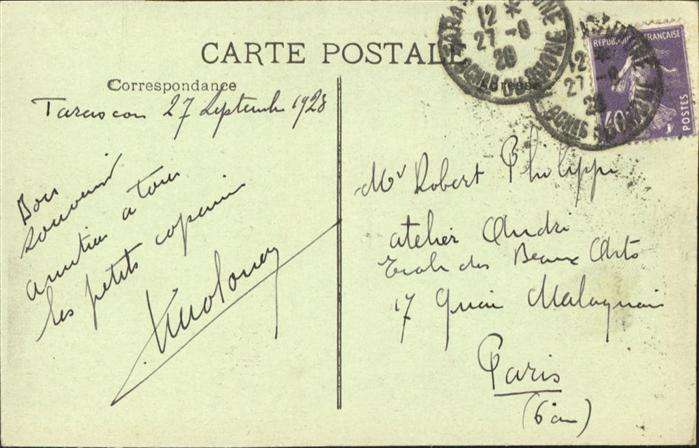 CARTE POSTALE
Correspondance
Tarascon 27 Septembre 1928
Bon
souvenir
amitiés a tous
les petits copains
Mr Robert Philippe
atelier André
Ecole des Beaux Arts
17 Quai Malaquais
Paris
(6 em)
12 *
27 - 9
28
12
27 - 9
28
REPUBLIQUE FRANÇAISE
40c
POSTES